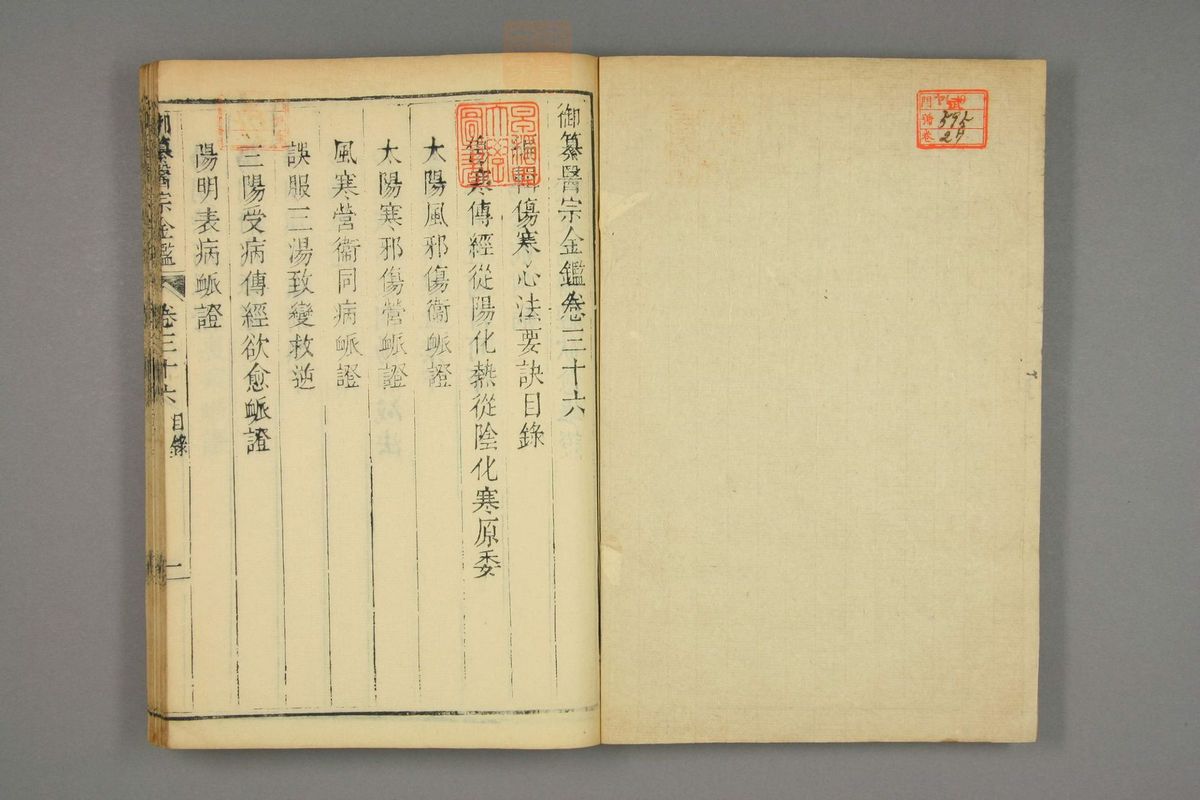 御纂醫宗金鑑卷三十六
編輯傷寒心法要訣目錄
傷寒傳經從陽化熱從陰化寒原委
太陽風邪傷衞脈證
太陽寒邪傷營脈證
風寒營衞同病脈證
誤服三湯致變救逆
三陽受病傳經欲愈脈證
陽明表病脈證
御纂醫宗金鑑 卷三十六 目錄 一
門 ヤ
號 595
卷 29